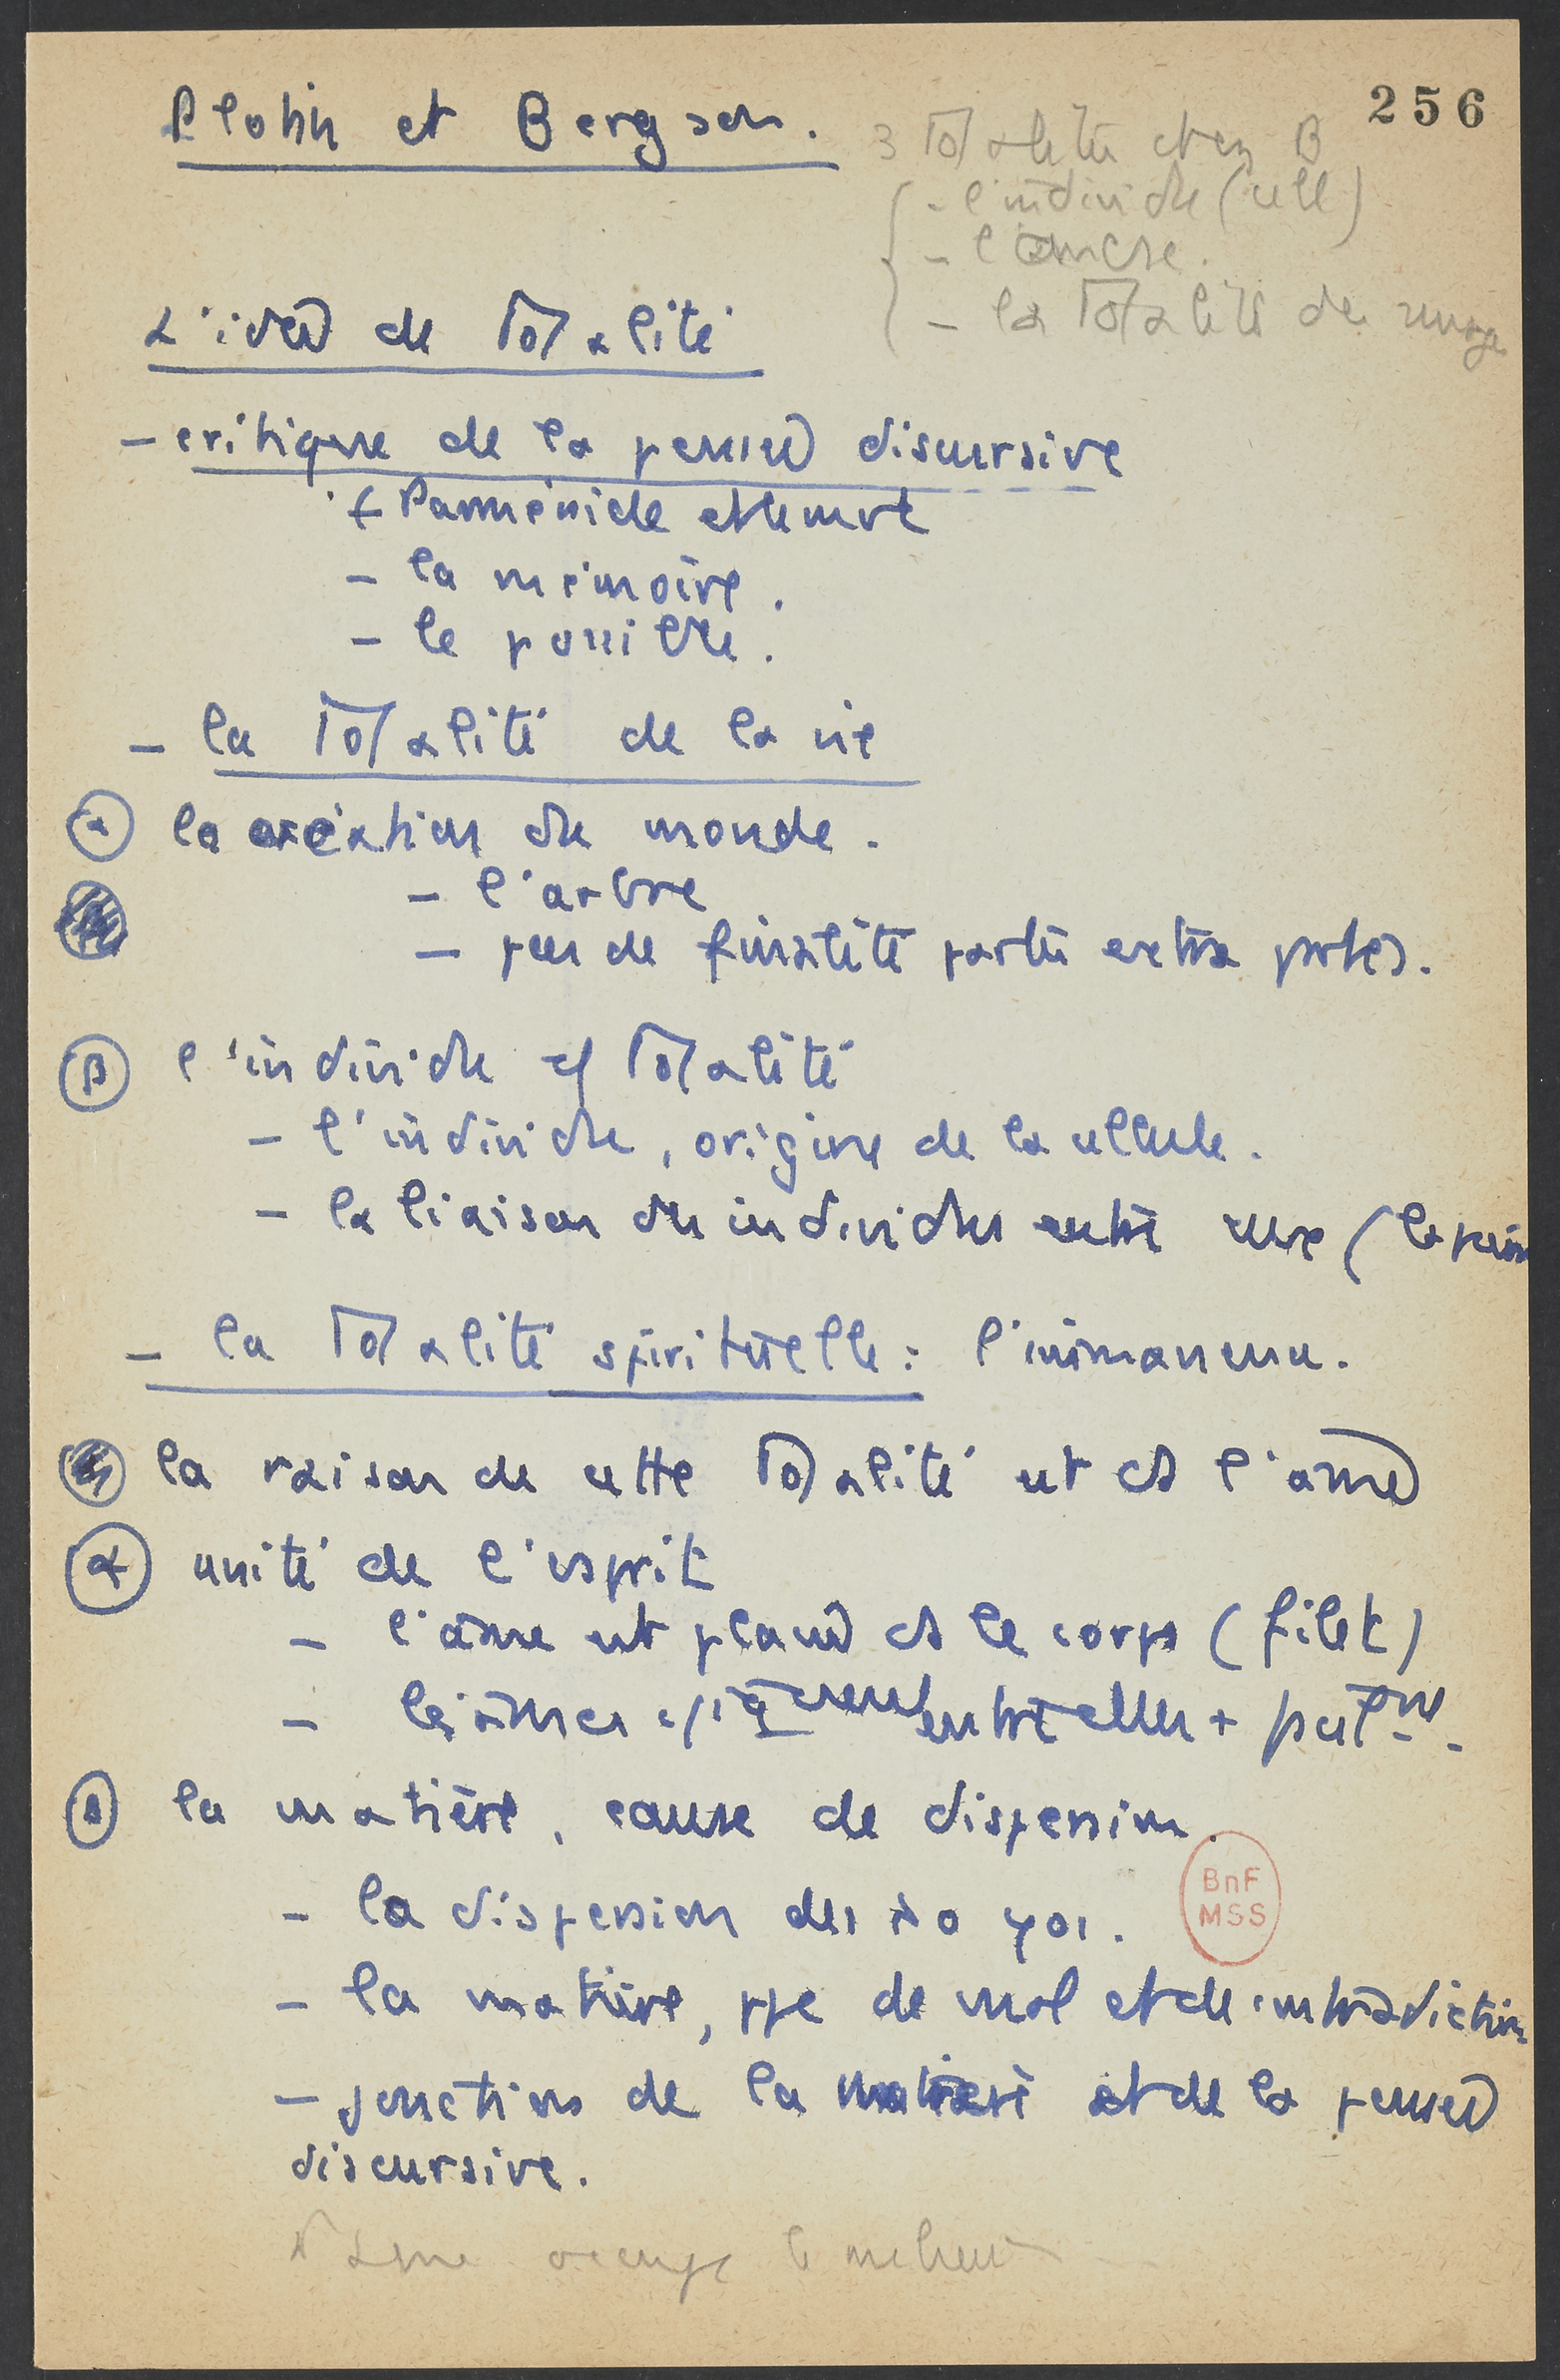 256
Plotin et Bergson.
3 Totalités chez B
- l'individu (cell)
- l'ombre.
- la Totalité des
L'idée de Totalité
- critique de la pensée discursive
Parménide et le mvt
- la mémoire.
- le possible.
- la Totalité de la vie
α la création du monde.
- l'arbre
- pas de finalité partes extra partes.
β l'individu et Totalité
- l'individu, origine de la cellule.
- la liaison des individus entre eux (la
- la Totalité spirituelle : l'immanence.
la raison de cette Totalité est ds l'âme
α unité de l'esprit
- l'âme est placée ds le corps (filet)
- les âmes entre elles +
β la matière, cause de dispersion.
- la dispersion des λογοι.
- la matière, ppe de mal et de contradiction
- jonction de la matière et de la pensée
discursive.
L'âme occupe le milieu
BnF
MSS